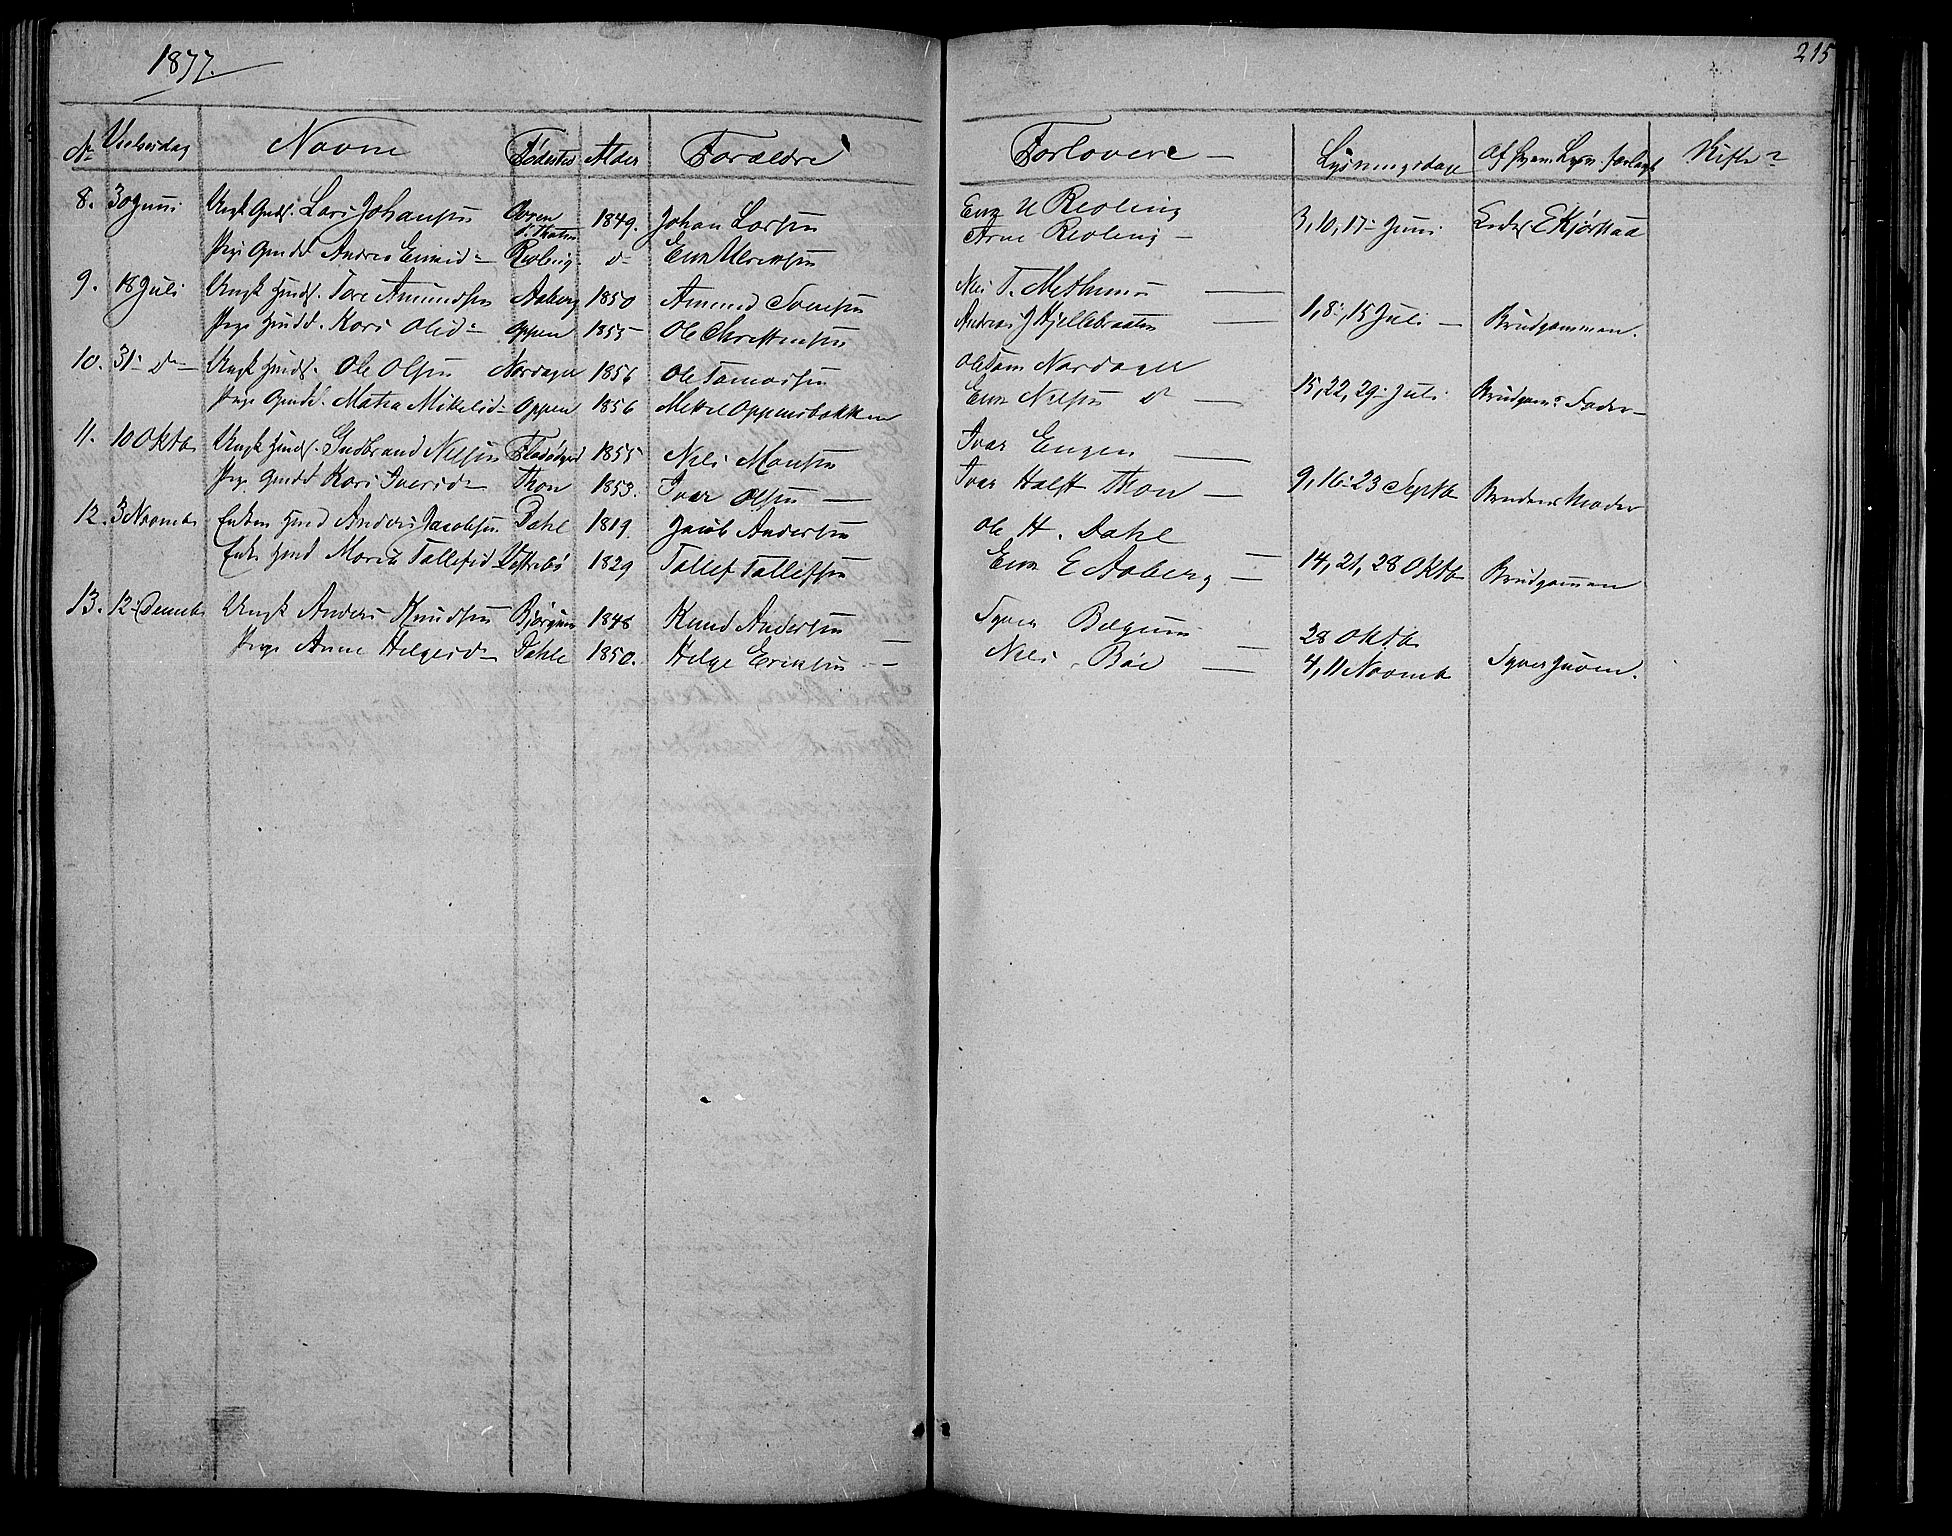 1877.
215
No Vielsesdag Navne Fødested Alder Forældre Forlovere Lysningsdage Af hvem Lysn. forlangt
8. 30 Juni Ungk Gmdf. Lars Johansen 1849. Johan Larsen Erik U Revling 3, 10, 17 Juni E Kjørstad
Pige Gmdd Andrea Eriksd Revling do Erik Ulriksen Arne Revling
9. 18 Juli Ungk Gmdf. Tore Amundsen Aaberg 1850 Amund Svensen Nils T. Methums 1, 8, 15 Juli Brudgommen.
Pige Gmdd. Kari Olsd Oppen 1855 Ole Christensen Andreas J Kjellebraaten
10. 31 do Ungk Gmdf. Ole Olsen Nordager 1856 Ole Tomassen Ole Tom Nordager 15, 22, 29 Juli Brudgoms Fader
Pige Gmdd. Matea Mikelsd Oppen 1856 Mikkel Oppensbakken Erik Nilsen do
11. 10 Oktb Ungk Gmdf. Gudbrand Nilsen 1855 Nils Monsen Ivar Engen 9, 16, 23 Septb Brudens Moder
Pige Gmdd Kari Iversd Thon 1853. Ivar Olsen Ivar Halft Thon
12. 3 Novmb Enkem Gmd Anders Jacobsen Dahl 1819. Jacob Andersen Ole H. Dahl 14, 21, 28 Oktb Brudgommen
Enke Gmd Marit Tollefsd Vestrebø 1829 Tollef Tollefsen Erik E Aaberg
13. 12 Decmb Ungk Anders Knudsen Bjørgum 1848 Knud Andersen Syver Bolgum 28 Oktb
Pige Anne Helgesd Dahle 1850. Helge Eriksen Nils Bøe 4, 11 Novmb Syver Juven.